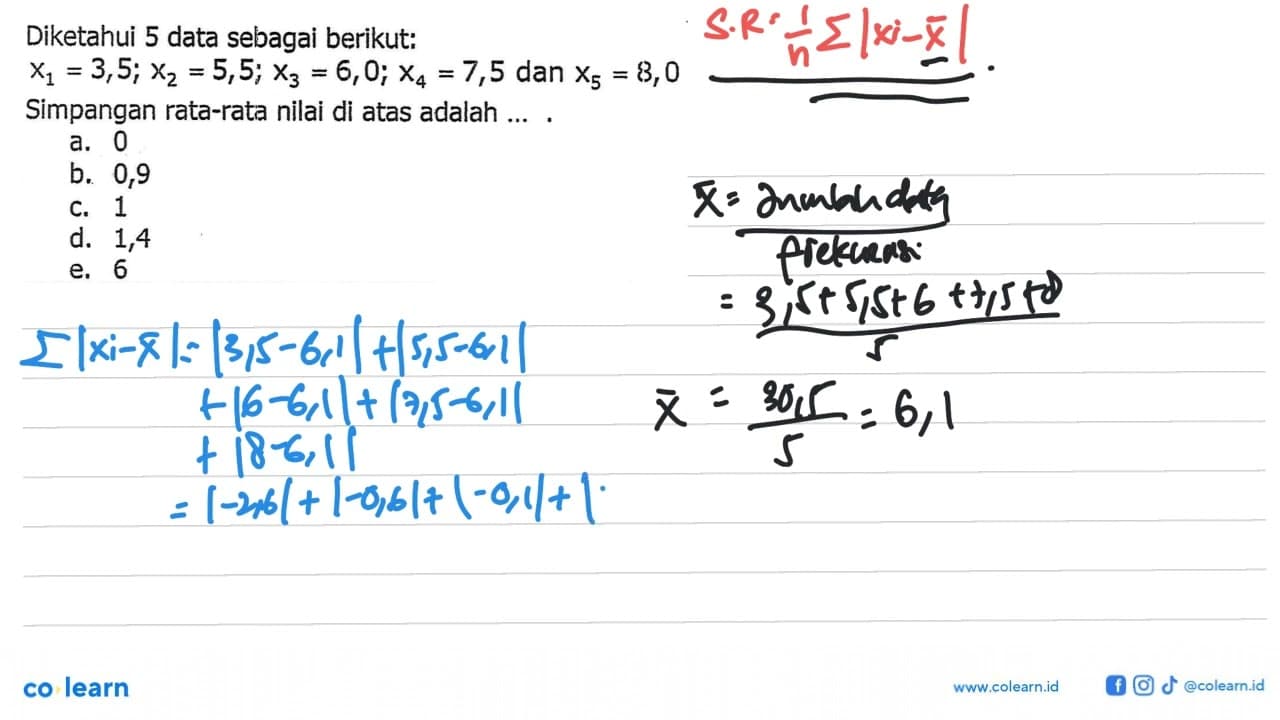 Diketahui 5 data sebagai berikut:
x₁ = 3,5; x₂ = 5,5; x₃ = 6,0; x₄ = 7,5 dan x₅ = 8,0
Simpangan rata-rata nilai di atas adalah ... .
a. 0
b. 0,9
c. 1
d. 1,4
e. 6
S.R = 1/n Σ |xi - x̄|
x̄ = Jumlah data / frekuensi
= 3,5 + 5,5 + 6 + 7,5 + 8 / 5
x̄ = 30,5 / 5 = 6,1
Σ |xi - x̄| = |3,5 - 6,1| + |5,5 - 6,1|
+ |6 - 6,1| + |7,5 - 6,1|
+ |8 - 6,1|
= |-2,6| + |-0,6| + |-0,1| + |
co learn
www.colearn.id
@colearn.id